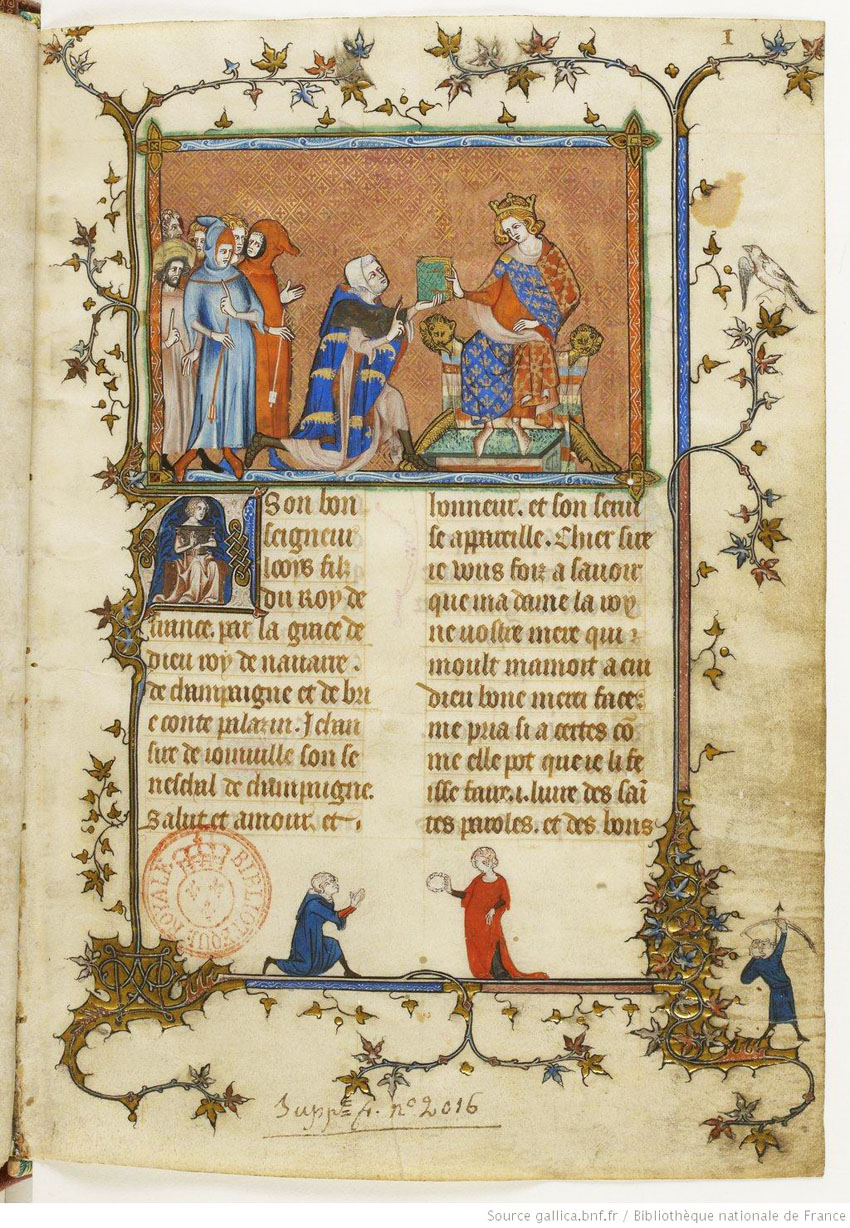 1
A Son bon
seigneur
looys filz
du Roy de
france. par la grace de
dieu roy de nauarre.
de champaigne et de bri
e conte palazin. Jehan
sire de ioinuille son se
neschal de champaigne.
Salut et amour. et
honneur. et son serui
se appareille. Chier sire
ie vous foiz a sauoir
que ma dame la roy
ne vostre mere qui
moult mamoit a cui
dieu bone merci face
me pria si a certes cō
me elle pot que ie li fe
isse faire .i. liure des saī
tes paroles. et des bons
BIBLIOTHEQUE ROYALE
Suppt. fr. no 2016
Source gallica.bnf.fr / Bibliothèque nationale de France